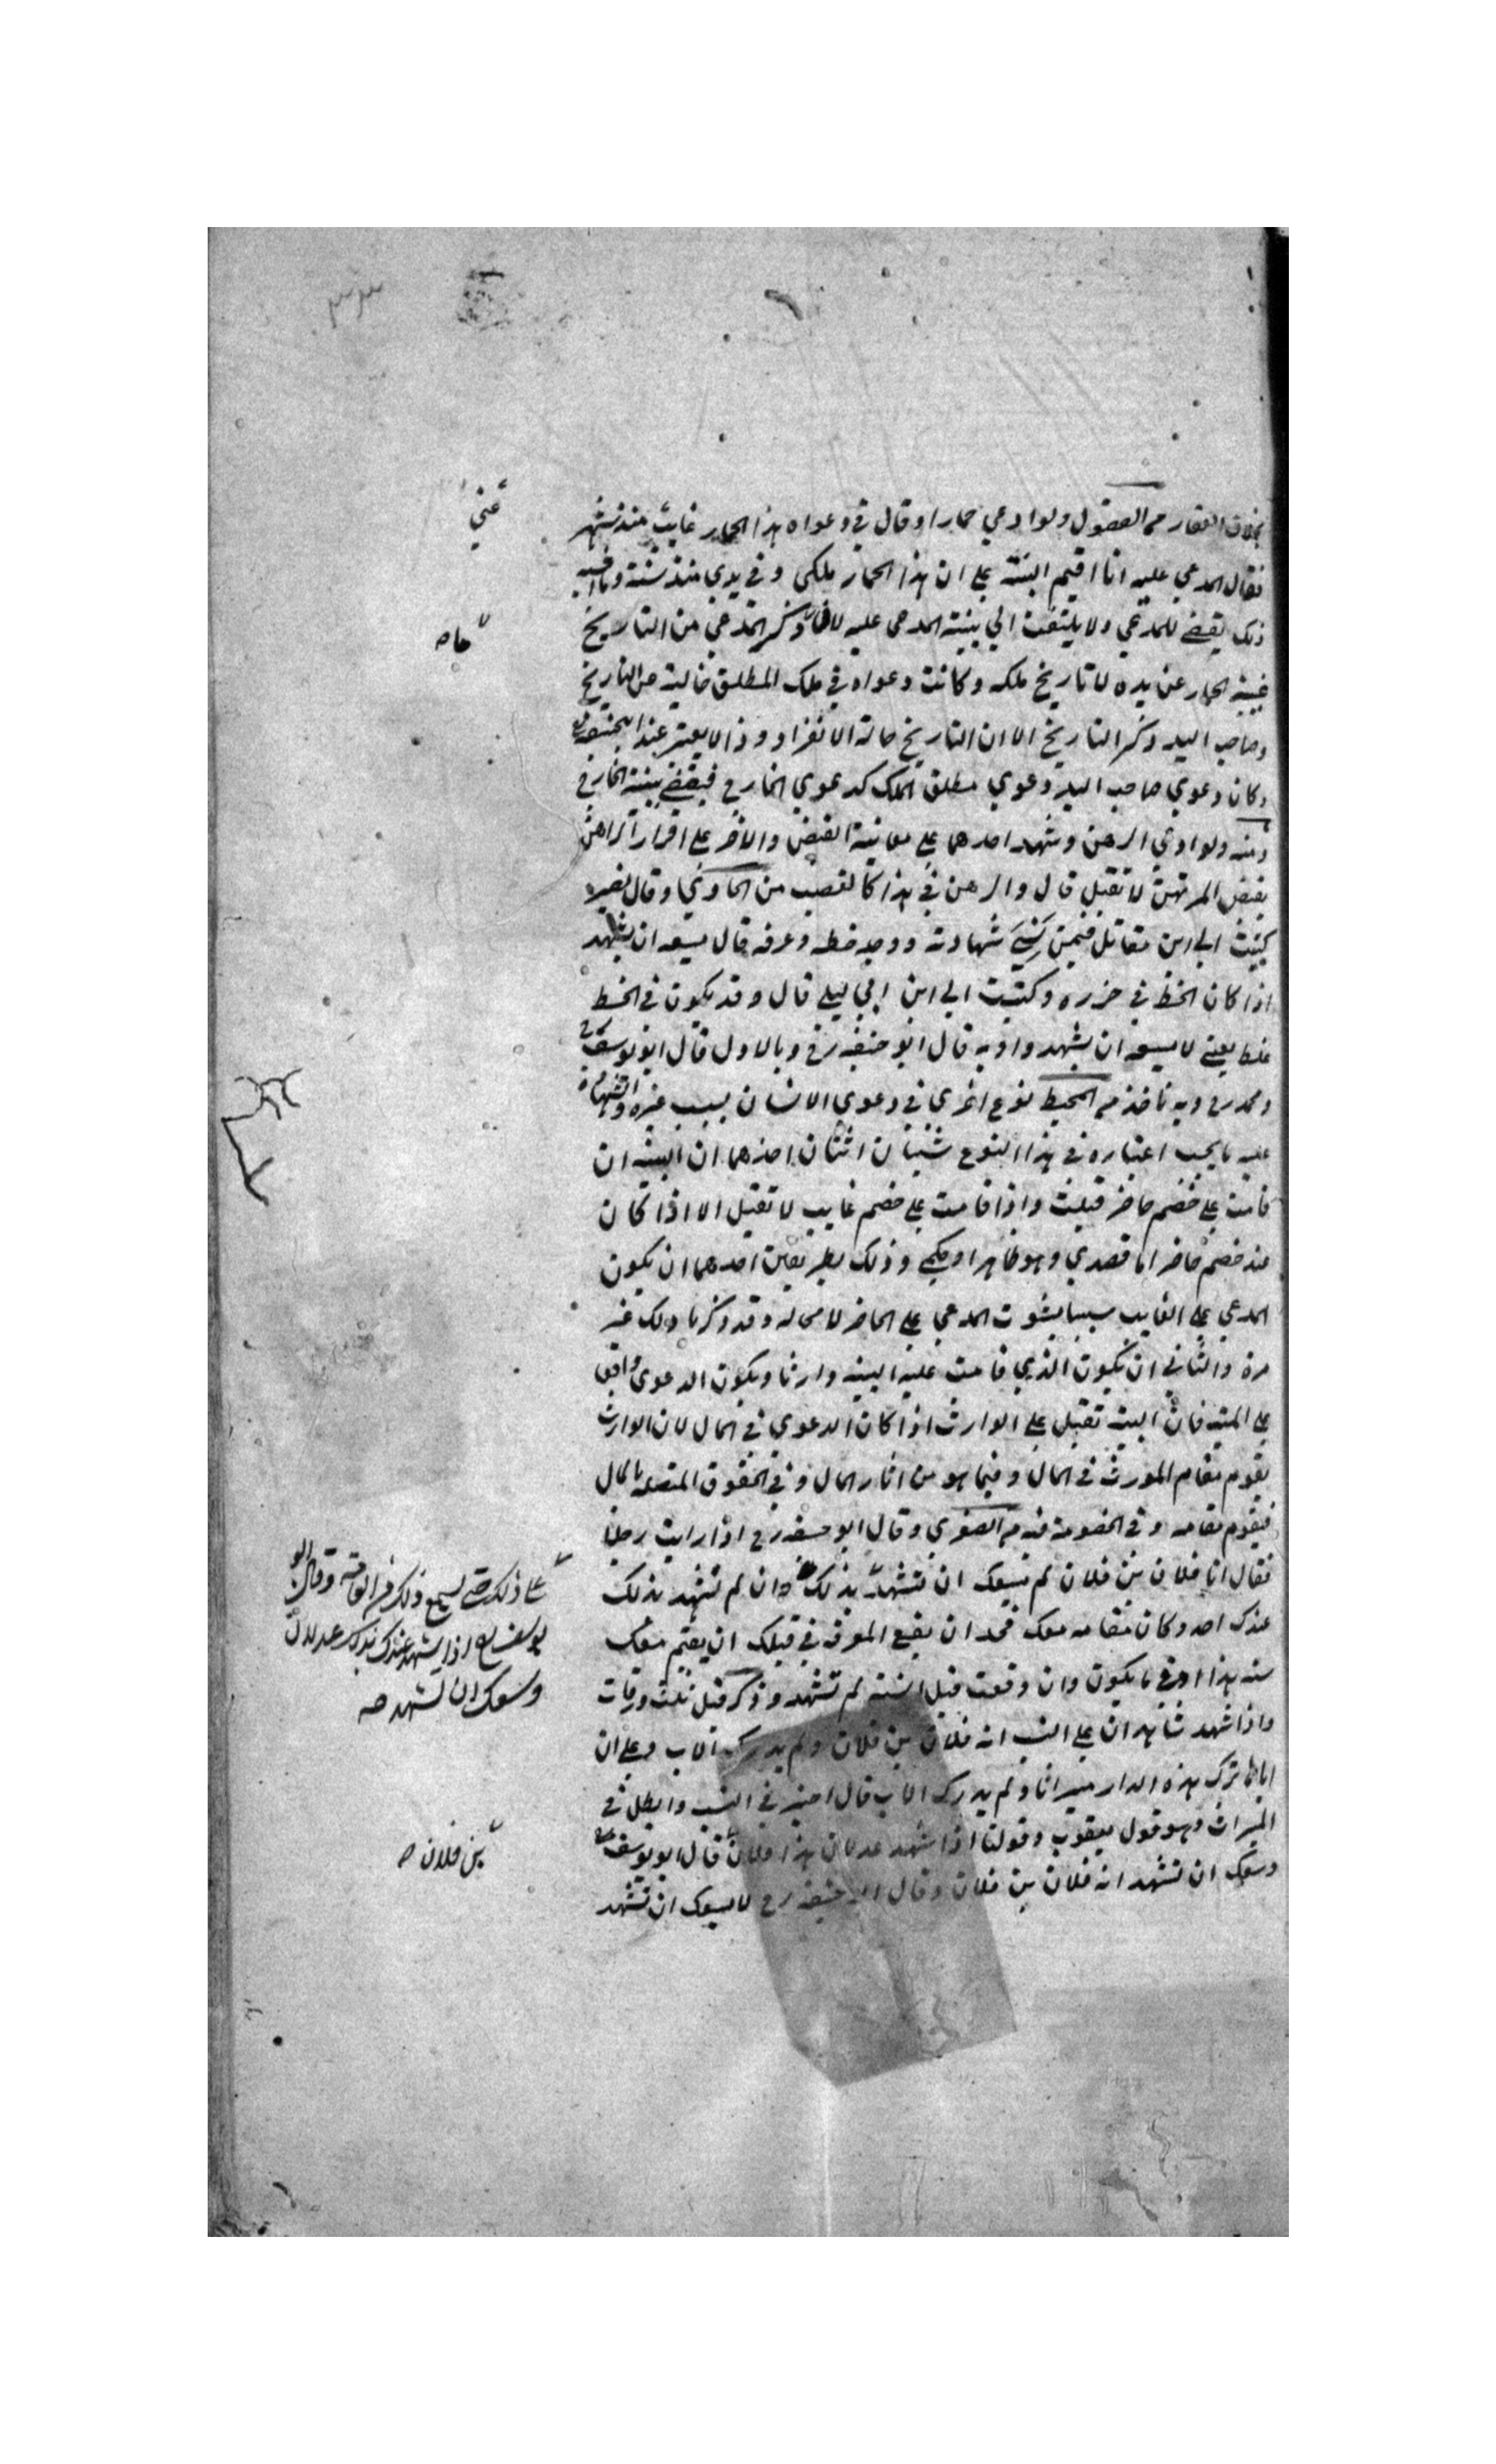 بخلاف العقار من الفصول ولو ادعى حمارا وقال في دعواه هذا الحمار غاب منذ شهر
عني
فقال المدعي عليه انا اقيم البينة على ان هذا الحمار ملكي وفي يدي منذ سنة وما اشبه
ذلك يقضي للمدعي ولا يلتفت الي بينة المدعي عليه لان ذكر المدعي من التاريخ
غيبة الحمار عن يده لا تاريخ ملكه وكانت دعواه في ملك المطلق خالية عن التاريخ
وصاحب اليد ذكر التاريخ الا ان التاريخ حالة الانفراد وذا لا يعتبر عند ابي حنيفة رح
وكان دعوي صاحب اليد دعوي مطلق الملك كدعوي الخارج فيقضي ببينة الخارج
منه ولو ادعي الرهن وشهد احدهما علي معاينة القبض والاخر علي اقرار الراهن
بقبض المرتهن لا تقبل قال والرهن في هذا كالغصب من الحاوي وقال نصير
كتبت الي ابن مقاتل فيمن نسي شهادته ووجد خطه وعرفه قال يسعه ان يشهد
اذا كان الخط في حرزه وكتبت الي ابن ابي ليلي قال وقد يكون في الخط
غلط يعني لا يسعه ان يشهد وا وبه قال ابو حنيفه رح وبالاول قال ابو يوسف رح
ومحمد رح وبه ناخذ من المحيط نوع اخري في دعوي الانسان بسبب غيره والشهادة
عليه ما يجب اعتباره في هذا النوع شيئان اثنان احدهما ان البينة ان
قامت علي خصم حاضر قبلت واذا قامت علي خصم غايب لا تقبل الا اذا كان
عنه خصم حاضر اما قصدي وهو ظاهر او حكمي وذلك بطريقين احدهما ان يكون
المدعي علي الغايب سببا لثبوت المدعي علي الحاضر لا محاله وقد ذكرنا ذلك غير
مرة والثاني ان يكون الذي قامت عليه البينه وارثا ويكون الدعوى واقعا
علي الميت فان البينة تقبل علي الوارث اذا كان الدعوي في المال لان الوارث
يقوم مقام المورث في المال وفيما هو من اثار المال وفي الحقوق المتصلة بالمال
فيقوم مقامه وفي الخصومة فيه من الصغري وقال ابو حنيفه رح اذا رايت رجلا
فقال انا فلان بن فلان لم يسعك ان تشهد بذلك وان لم تشهد بذلك
عندك احد وكان مقامه معك فحد ان يقع المعرفه في قبلك ان يقيم معك
سنه هذا ادني ما يكون وان وقعت قبل السنة لم تشهد وذكر قبل ثلث ورقات
واذا شهد شاهدان علي النسب انه فلان بن فلان ولم يدرك الاب وعلي ان
اباه ترك هذه الدار ميراثا ولم يدرك الاب قال اجيز في النسب وابطل في
الميراث وهو قول يعقوب وقولنا اذا شهد عدلان هذا فلان قال ابو يوسف رح
وسعك ان تشهد انه فلان بن فلان وقال ابو حنيفه رح لا يسعك ان تشهد
علي ذلك حتى يسمع ذلك من العامة وقال ابو
يوسف رح اذا شهد عندك بذلك عدلان
وسعك ان تشهد صح
بن فلان صح